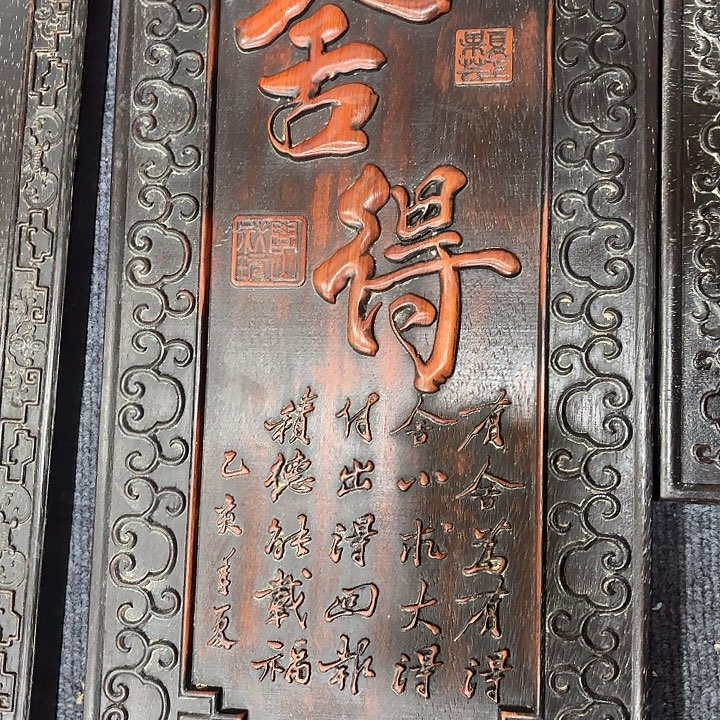 舍得
有舍有得
舍小求大得
付出得回報
積德能載福
乙亥年夏